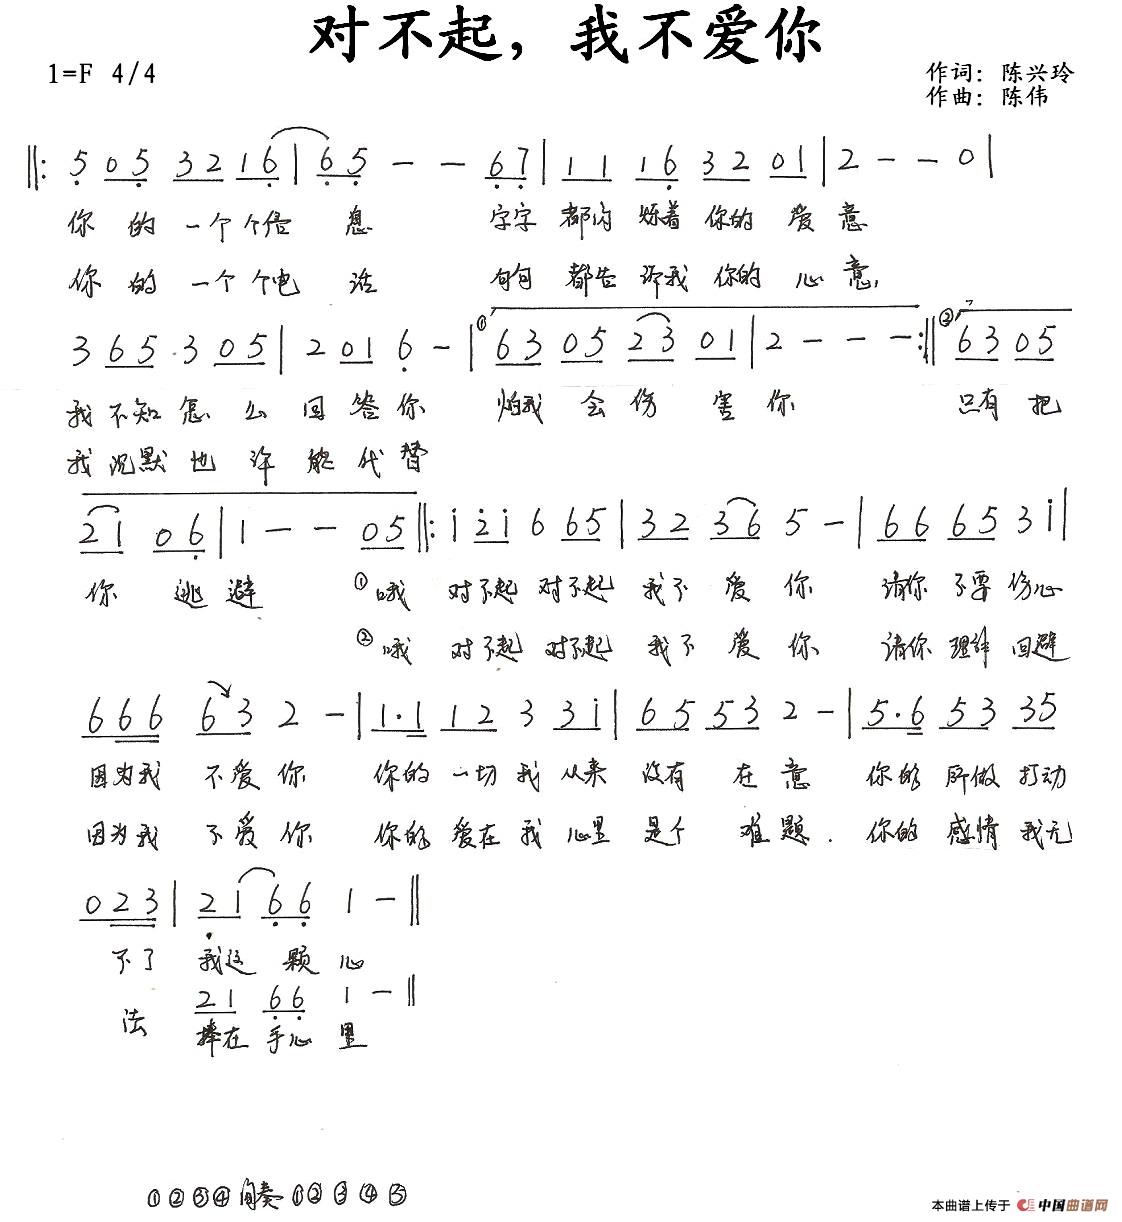 对不起，我不爱你
1=F 4/4
作词：陈兴玲
作曲：陈伟
‖: 5 05 32 16 | 65 - - 67 | 11 16 32 01 | 2 - - 0 |
你的一个个信息 字字都闪烁着你的爱意
你的一个个电话 句句都告诉我你的心意,
3 65 3 05 | 2 01 6 - | ① 63 05 23 01 | 2 - - - :‖ ② 63 05
我不知怎么回答你 怕我会伤害你 只有把
我沉默也许能代替
21 06 | 1 - - 05 ‖: i 2i 6 65 | 32 36 5 - | 66 65 3i |
你逃避 ①哦 对不起对不起我不爱你 请你不要伤心
②哦 对不起对不起我不爱你 请你理解回避
666 63 2 - | 1·1 12 3 3i | 65 53 2 - | 5·6 53 35
因为我不爱你 你的一切我从来没有在意 你的所做打动
因为我不爱你 你的爱在我心里是个难题. 你的感情我无
023 | 21 66 1 - ‖
不了 我这颗心
21 66 1 - ‖
法 捧在手心里
①②③④间奏①②③④⑤
本曲谱上传于 中国曲谱网